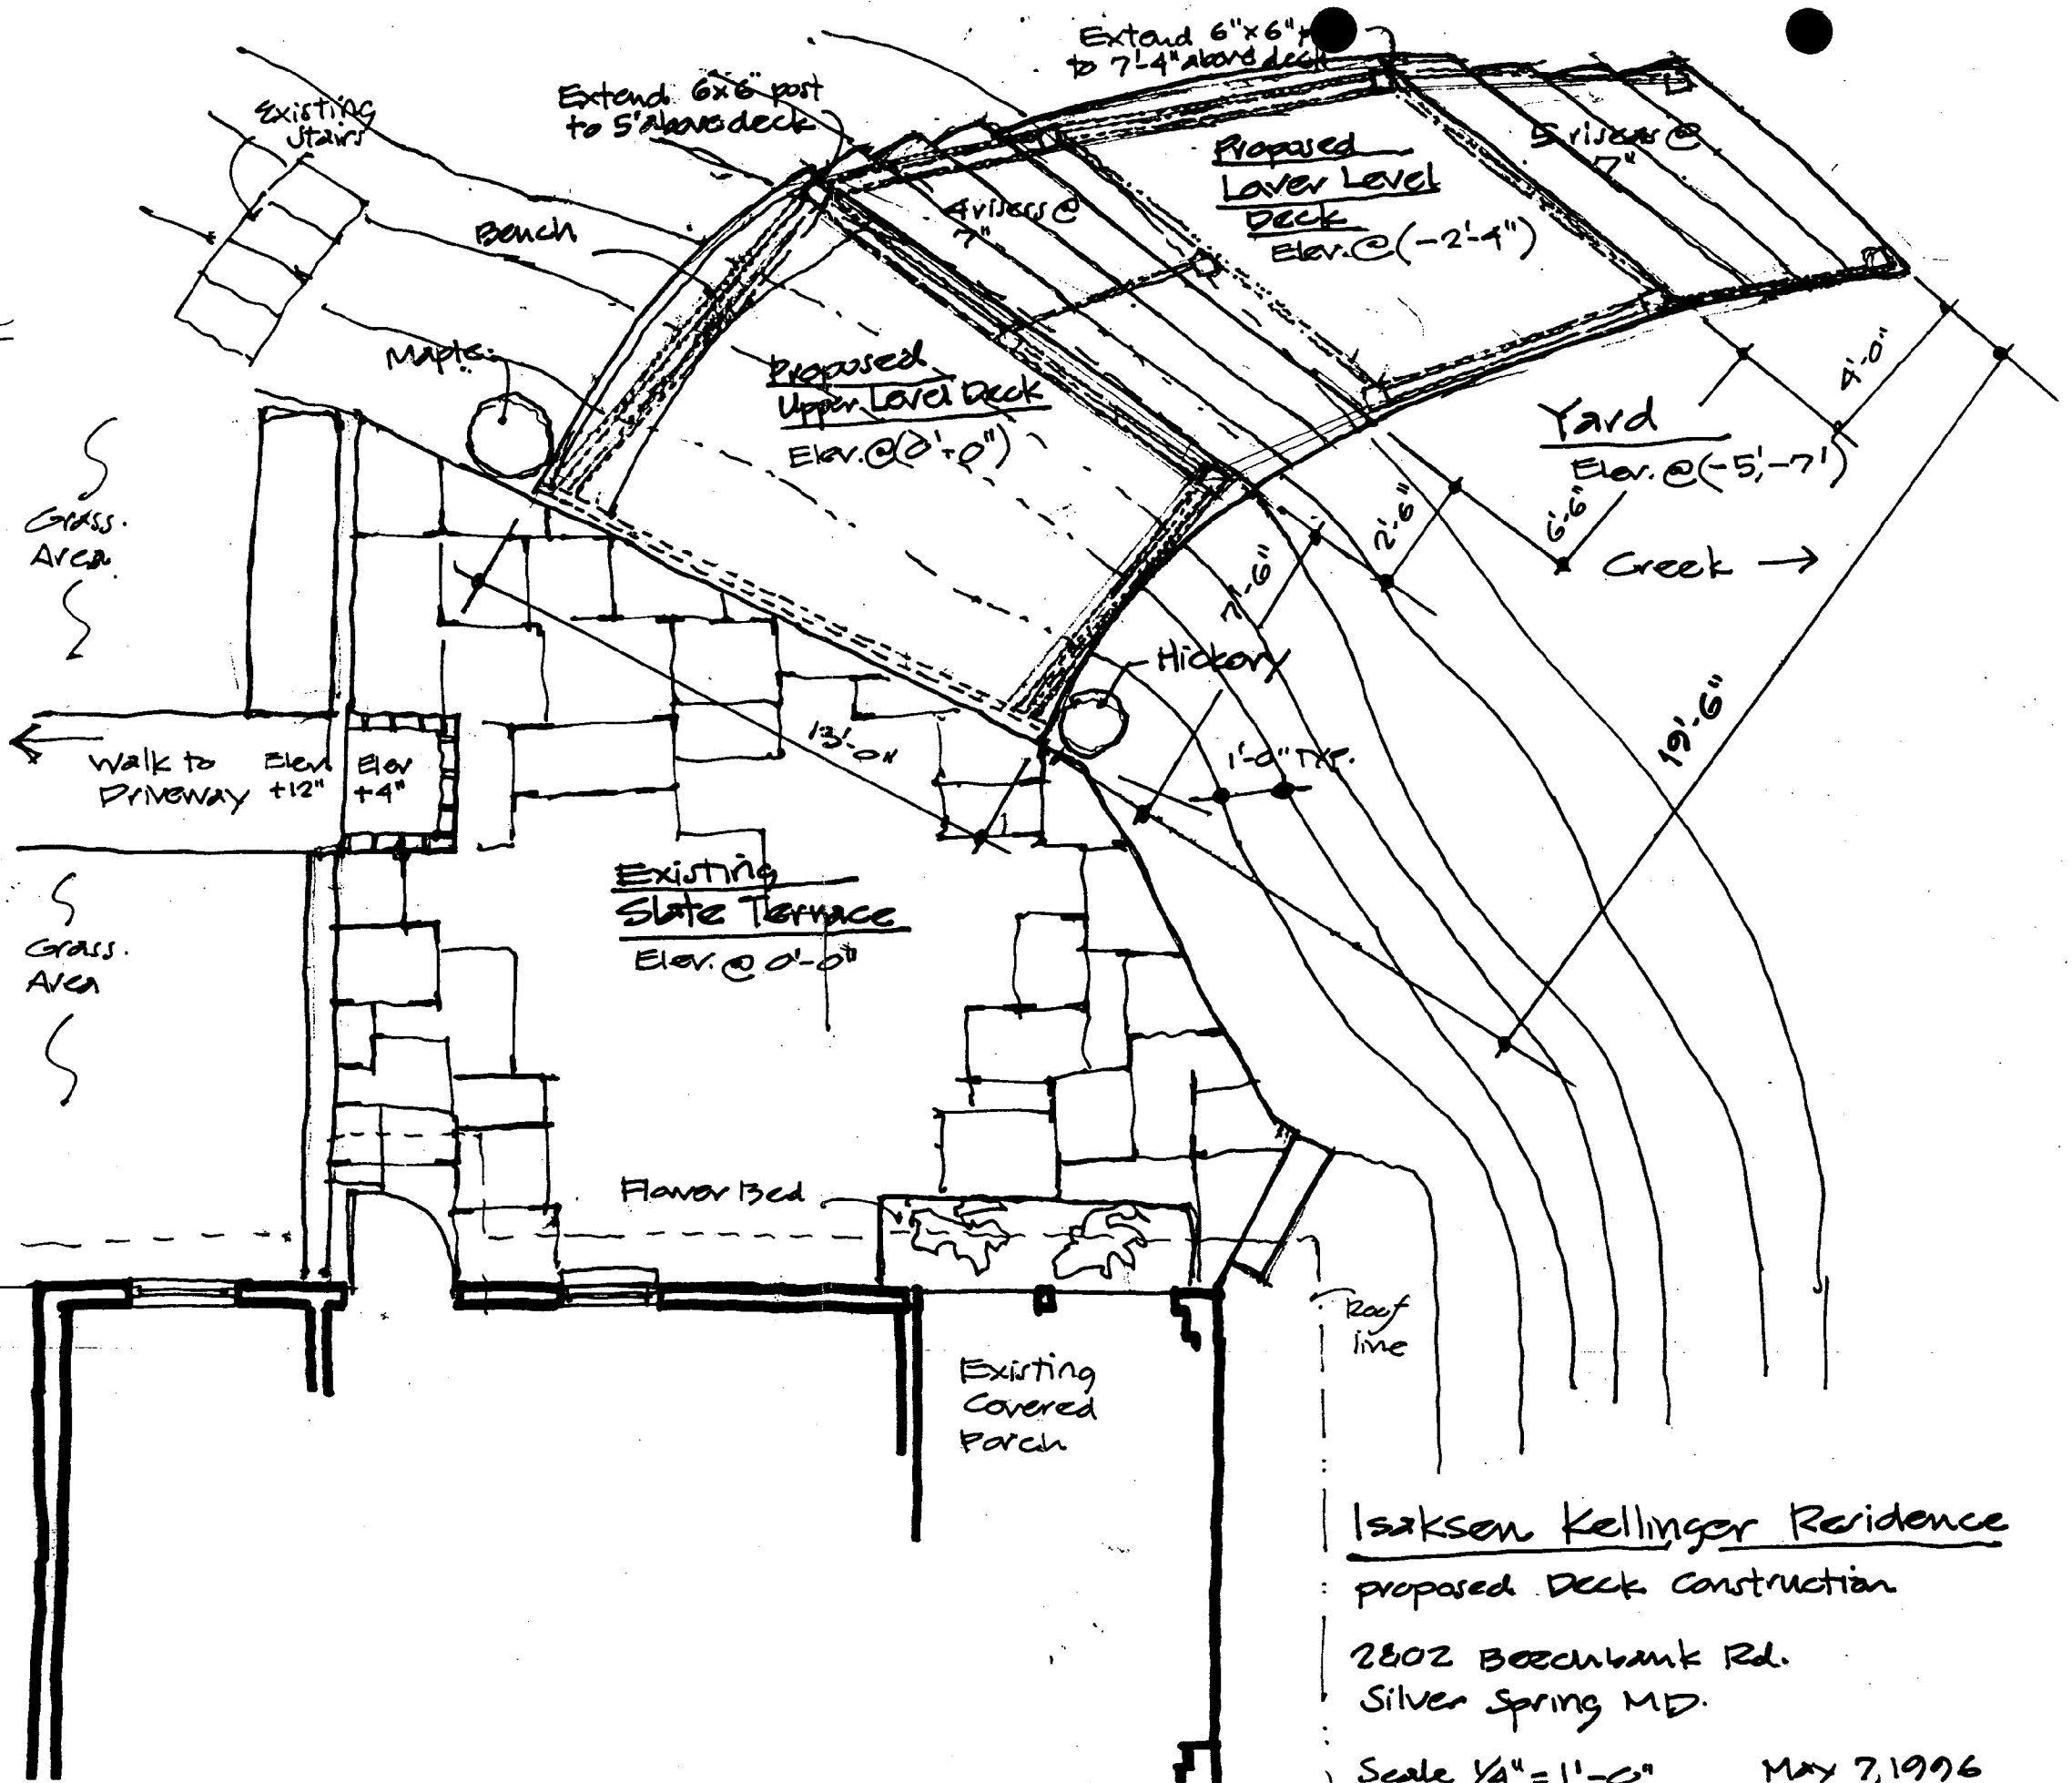 Extend 6"x6"
to 7'-4" above deck
Extend 6x6 post
to 5' above deck
Existing
Stairs
Bench
Maple
4 risers @
7"
Proposed
Lower Level
Deck
Elev. @ (-2'-4")
5 risers @
7"
Proposed
Upper Level Deck
Elev. @ (0'-0")
4'-0"
Yard
Elev. @ (-5'-7")
2'-6"
6'-6"
Creek
Grass
Area
Hickory
13'-0"
1'-0" TYP.
19'-6"
Walk to
Driveway
Elev
+12"
Elev
+4"
Existing
Slate Terrace
Elev. @ 0'-0"
Grass
Area
Flower Bed
Roof
line
Existing
Covered
Porch
Isaksen Kellinger Residence
proposed Deck Construction
2802 Beechbank Rd.
Silver Spring MD.
Scale 1/4" = 1'-0" May 7, 1996